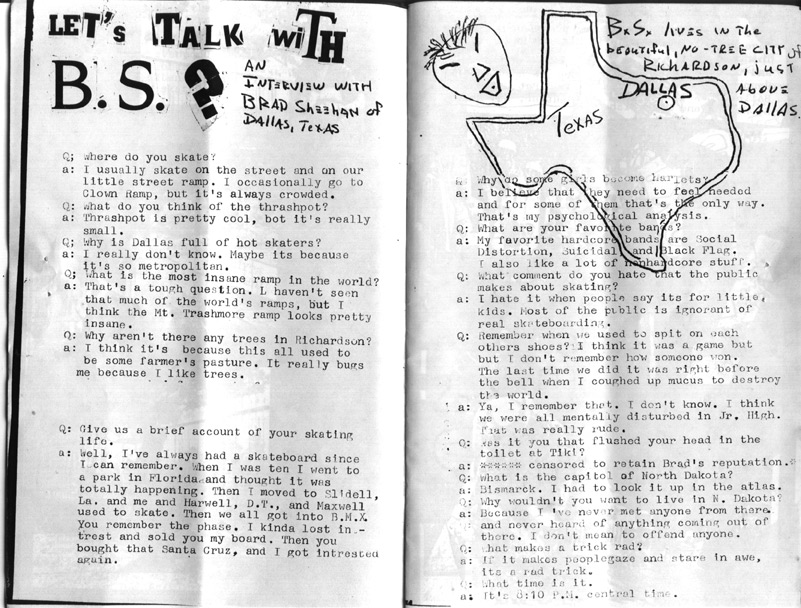 LET'S TALK WiTH
B.S.?
AN
INTERVIEW WITH
BRAD SHEEHAN of
DALLAS, TEXAS
Q; Where do you skate?
a: I usually skate on the street and on our
little street ramp. I occasionally go to
Clown Ramp, but it's always crowded.
Q: What do you think of the thrashpot?
a: Thrashpot is pretty cool, bot it's really
small.
Q; Why is Dallas full of hot skaters?
a: I really don't know. Maybe its because
it's so metropolitan.
Q; What is the most insane ramp in the world?
a: That's a tough question. L haven't seen
that much of the world's ramps, but I
think the Mt. Trashmore ramp looks pretty
insane.
Q: Why aren't there any trees in Richardson?
a: I think it's because this all used to
be some farmer's pasture. It really bugs
me because I like trees.
Q: Give us a brief account of your skating
life.
a: Well, I've always had a skateboard since
I can remember. When I was ten I went to
a park in Florida and thought it was
totally happening. Then I moved to Slidell,
La. and me and Harwell, D.T., and Maxwell
used to skate. Then we all got into B.M.X.
You remember the phase. I kinda lost in-
trest and sold you my board. Then you
bought that Santa Cruz, and I got intrested
again.
B.S. LIVES IN THE
beautiful, NO-TREE CITY of
RICHARDSON, just
ABOVE
DALLAS.
DALLAS
TEXAS
Why do some girls become harlets?
a: I believe that they need to feel needed
and for some of them that's the only way.
That's my psychological analysis.
Q: What are your favorite bands?
a: My favorite hardcore bands are Social
Distortion, Suicidal and Black Flag.
I also like a lot of nonhardcore stuff.
Q: What comment do you hate that the public
makes about skating?
a: I hate it when people say its for little
kids. Most of the public is ignorant of
real skateboarding.
Q: Remember when we used to spit on each
others shoes? I think it was a game but
but I don't remember how someone won.
The last time we did it was right before
the bell when I coughed up mucus to destroy
the world.
a: Ya, I remember that. I don't know. I think
we were all mentally disturbed in Jr. High.
That was really rude.
Q: Was it you that flushed your head in the
toilet at Tiki?
a: ****** censored to retain Brad's reputation.*
Q: What is the capitol of North Dakota?
a: Bismarck. I had to look it up in the atlas.
Q: Why wouldn't you want to live in N. Dakota?
a: Because I 've never met anyone from there
and never heard of anything coming out of
there. I don't mean to offend anyone.
Q: What makes a trick rad?
a: If it makes peoplegaze and stare in awe,
its a rad trick.
Q: What time is it.
a: It's 8:10 P.M. central time.